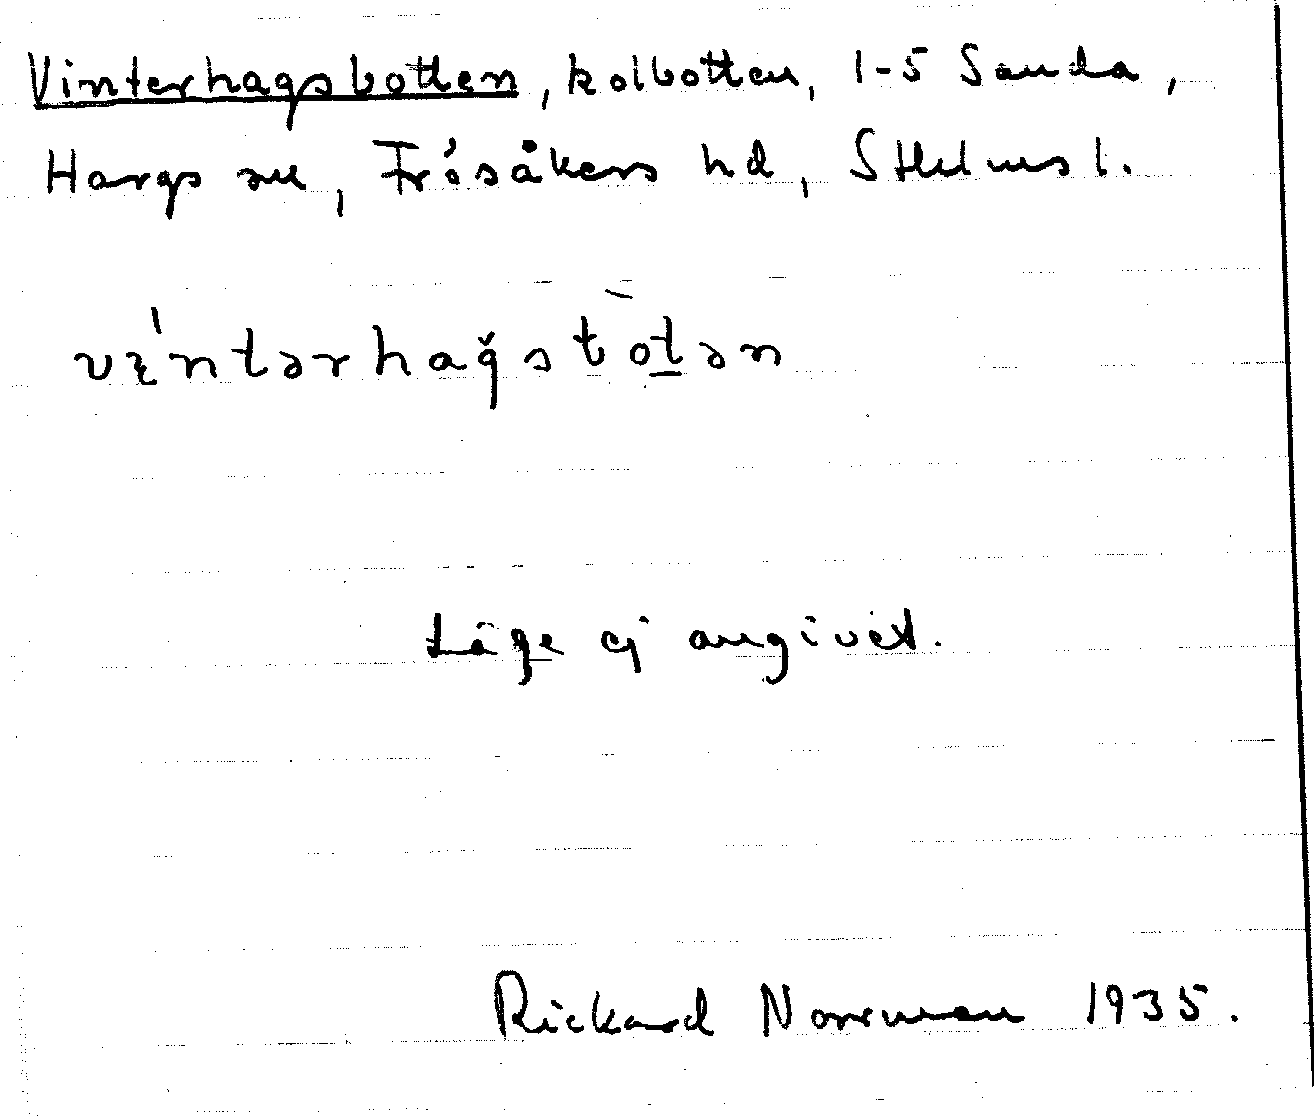 Vinterhagsbotten, kolbotten, 1-5 Sanda,
Hargs sn, Frösåkers hd, Sthlms l.
Läge ej angivet.
Rickard Norrman 1935.